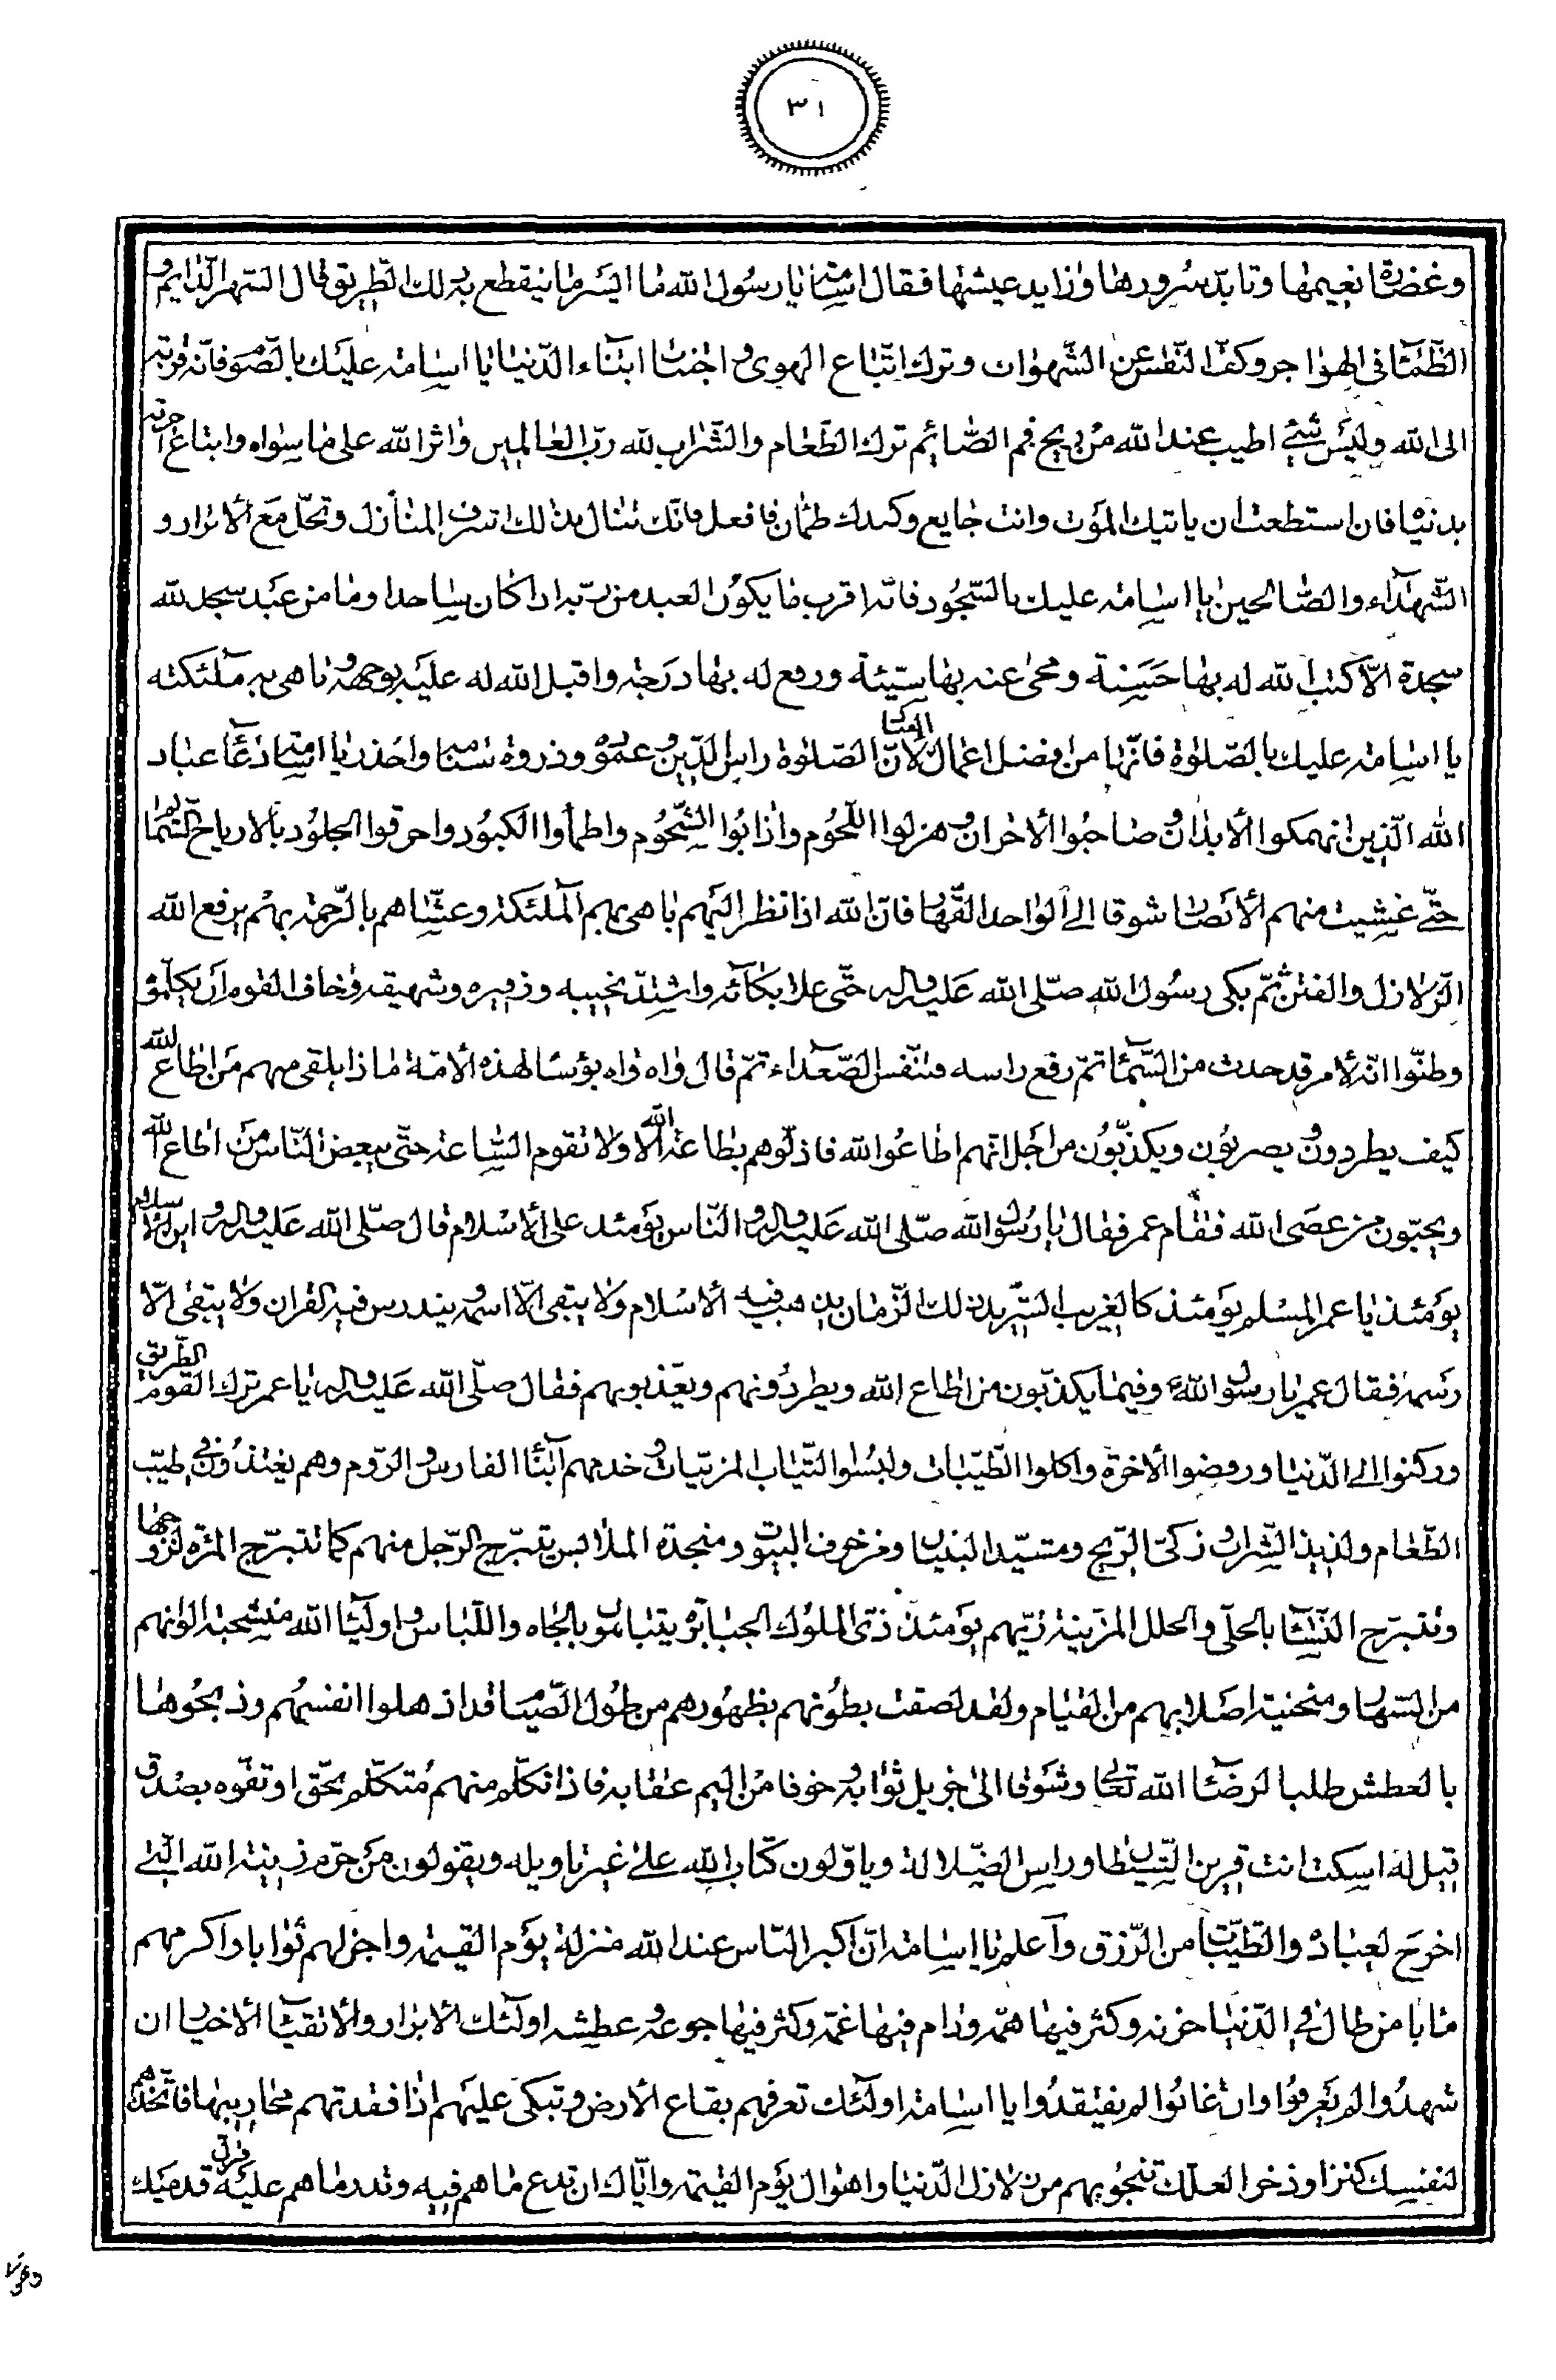 ٣١
وغضارة نعيمها وتابد سرورها وزايد عيشها فقال اسامة يا رسول الله ما ايسر ما ينقطع به لك الطريق قال السهر الدايم و
الظمأ فى الهواجر وكف النفس عن الشهوات وترك اتباع الهوى واجتناب ابناء الدنيا يا اسامة عليك بالصوم فانه قربة
الى الله وليس شئ اطيب عند الله من ريح فم الصائم ترك الطعام والشراب لله رب العالمين واثر الله على ما سواه وابتاع اخرته
بدنياه فان استطعت ان ياتيك الموت وانت جايع وكبدك ظمان فافعل فانك تنال بذلك اشرف المنازل وتحل مع الابرار و
الشهداء والصالحين يا اسامة عليك بالسجود فانه اقرب ما يكون العبد من ربه اذا كان ساجدا وما من عبد سجد لله
سجدة الا كتب الله له بها حسنة ومحى عنه بها سيئة ورفع له بها درجة واقبل الله له عليه بوجهه وباهى به ملئكته
يا اسامة عليك بالصلوة فانها من افضل اعمال العباد لان الصلوة راس الدين وعموده وذروة سنامه واحذر يا اسامة دعاء عباد
الله الذين انهمكوا الابدان وصاحبوا الاحزان وهزلوا اللحوم واذابوا الشحوم واظمأوا الكبود واحرقوا الجلود بالارياح والسمايم
حتى غشيت منهم الابصار شوقا الى الواحد القهار فان الله اذا نظر اليهم باهى بهم الملئكة وغشاهم بالرحمة بهم يرفع الله
الزلازل والفتن ثم بكى رسول الله صلى الله عليه واله حتى علا بكائه واشتد نحيبه وزفيره وشهيقه وخاف القوم ان يكلموه
وظنوا انه لامر قد حدث من السماء ثم رفع راسه فتنفس الصعداء ثم قال واه واه بؤسا لهذه الامة ماذا يلقى منهم من اطاع الله
كيف يطردون ويضربون ويكذبون من اجل انهم اطاعوا الله فاذلوهم بطاعة الله الا ولا تقوم الساعة حتى يبغض الناس من اطاع الله
ويحبون من عصى الله فقام عمر فقال يا رسول الله صلى الله عليه واله والناس يومئذ على الاسلام قال صلى الله عليه واله واين الاسلام
يومئذ يا عمر المسلم يومئذ كالغريب الشريد ذلك الزمان يذهب فيه الاسلام ولا يبقى الا اسمه ويندرس فيه القران ولا يبقى الا
رسمه فقال عمر يا رسول الله وفيما يكذبون من اطاع الله ويطردونهم ويعذبوبهم فقال صلى الله عليه واله يا عمر ترك القوم الطريق
وركنوا الى الدنيا ورفضوا الاخرة واكلوا الطيبات ولبسوا الثياب المزينات وخدمهم ابناء الفارس والروم وهم يغتذون فى طيب
الطعام ولذيذ الشراب وزكى الريح ومشيد البنيان ومزخرف البيوت ومنجدة الملابس يتبرج الرجل منهم كما تتبرج المرئة لزوجها
وتتبرج النساء بالحلى والحلل المزينة زيهم يومئذ زى الملوك الجبابرة يتباهون بالجاه واللباس واولياء الله متشحبة الوانهم
من السهر ومنحنية اصلابهم من القيام ولقد لصقت بطونهم بظهورهم من طول الصيام قد اذهلوا انفسهم وذبحوها
بالعطش طلبا لرضاء الله تعالى وشوقا الى جزيل ثوابه وخوفا من اليم عقابه فاذا تكلم منهم متكلم بحق او تفوه بصدق
قيل له اسكت انت قرين الشيطان وراس الضلالة وياولون كتاب الله على غير تاويله ويقولون من حرم زينة الله التى
اخرج لعباده والطيبات من الرزق واعلم يا اسامة ان اكبر الناس عند الله منزلة يوم القيمة واجزلهم ثوابا واكرمهم
مابا من طال فى الدنيا حزنه وكثر فيها همه ودام فيها غمه وكثر فيها جوعه وعطشه اولئك الابرار والاتقياء الاخيار ان
شهدوا لم يعرفوا وان غابوا لم يفتقدوا يا اسامة اولئك تعرفهم بقاع الارض وتبكى عليهم اذا فقدتهم محاريبها فاتخذهم
لنفسك كنزا وذخرا لعلك تنجو بهم من زلازل الدنيا واهوال يوم القيمة واياك ان تدع ما هم فيه وتذر ما هم عليه فتزل قدميك